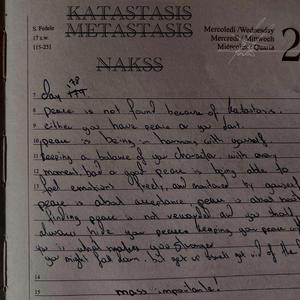 KATASTASIS
METASTASIS
NAKSS
S. Fedele
17 s.w.
115-251
Mercoledì/Wednesday
Mercredi/Mittwoch
Miércoles/Quarta
2
7 day 78
8 peace is not found because of katastasis.
9 either you have peace or you don't.
10 peace is being in harmony with yourself
11 keeping a balance of your character with every
12 moment, bad or good peace is being able to
13 feel emotions freely, and maintained by yourself
peace is about acceptance, peace is about
finding peace is not
always hide your peace keeping you
you is what makes you stronger
you might fall down, but get up and get rid of the
14
15 mass importante!